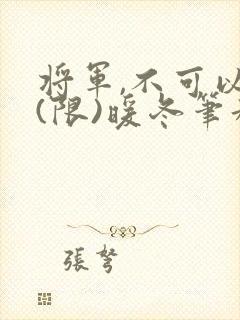 將軍,不可以
(限)暖冬筆
張弩